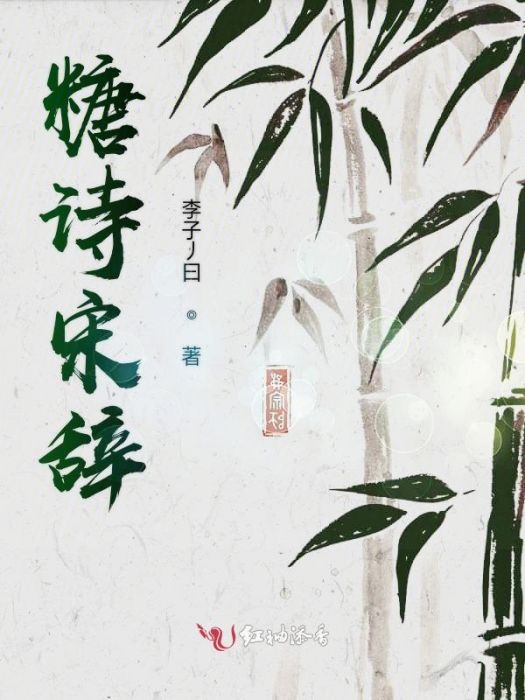 糖诗宋辞
李子丿曰
◎
著
红袖添香